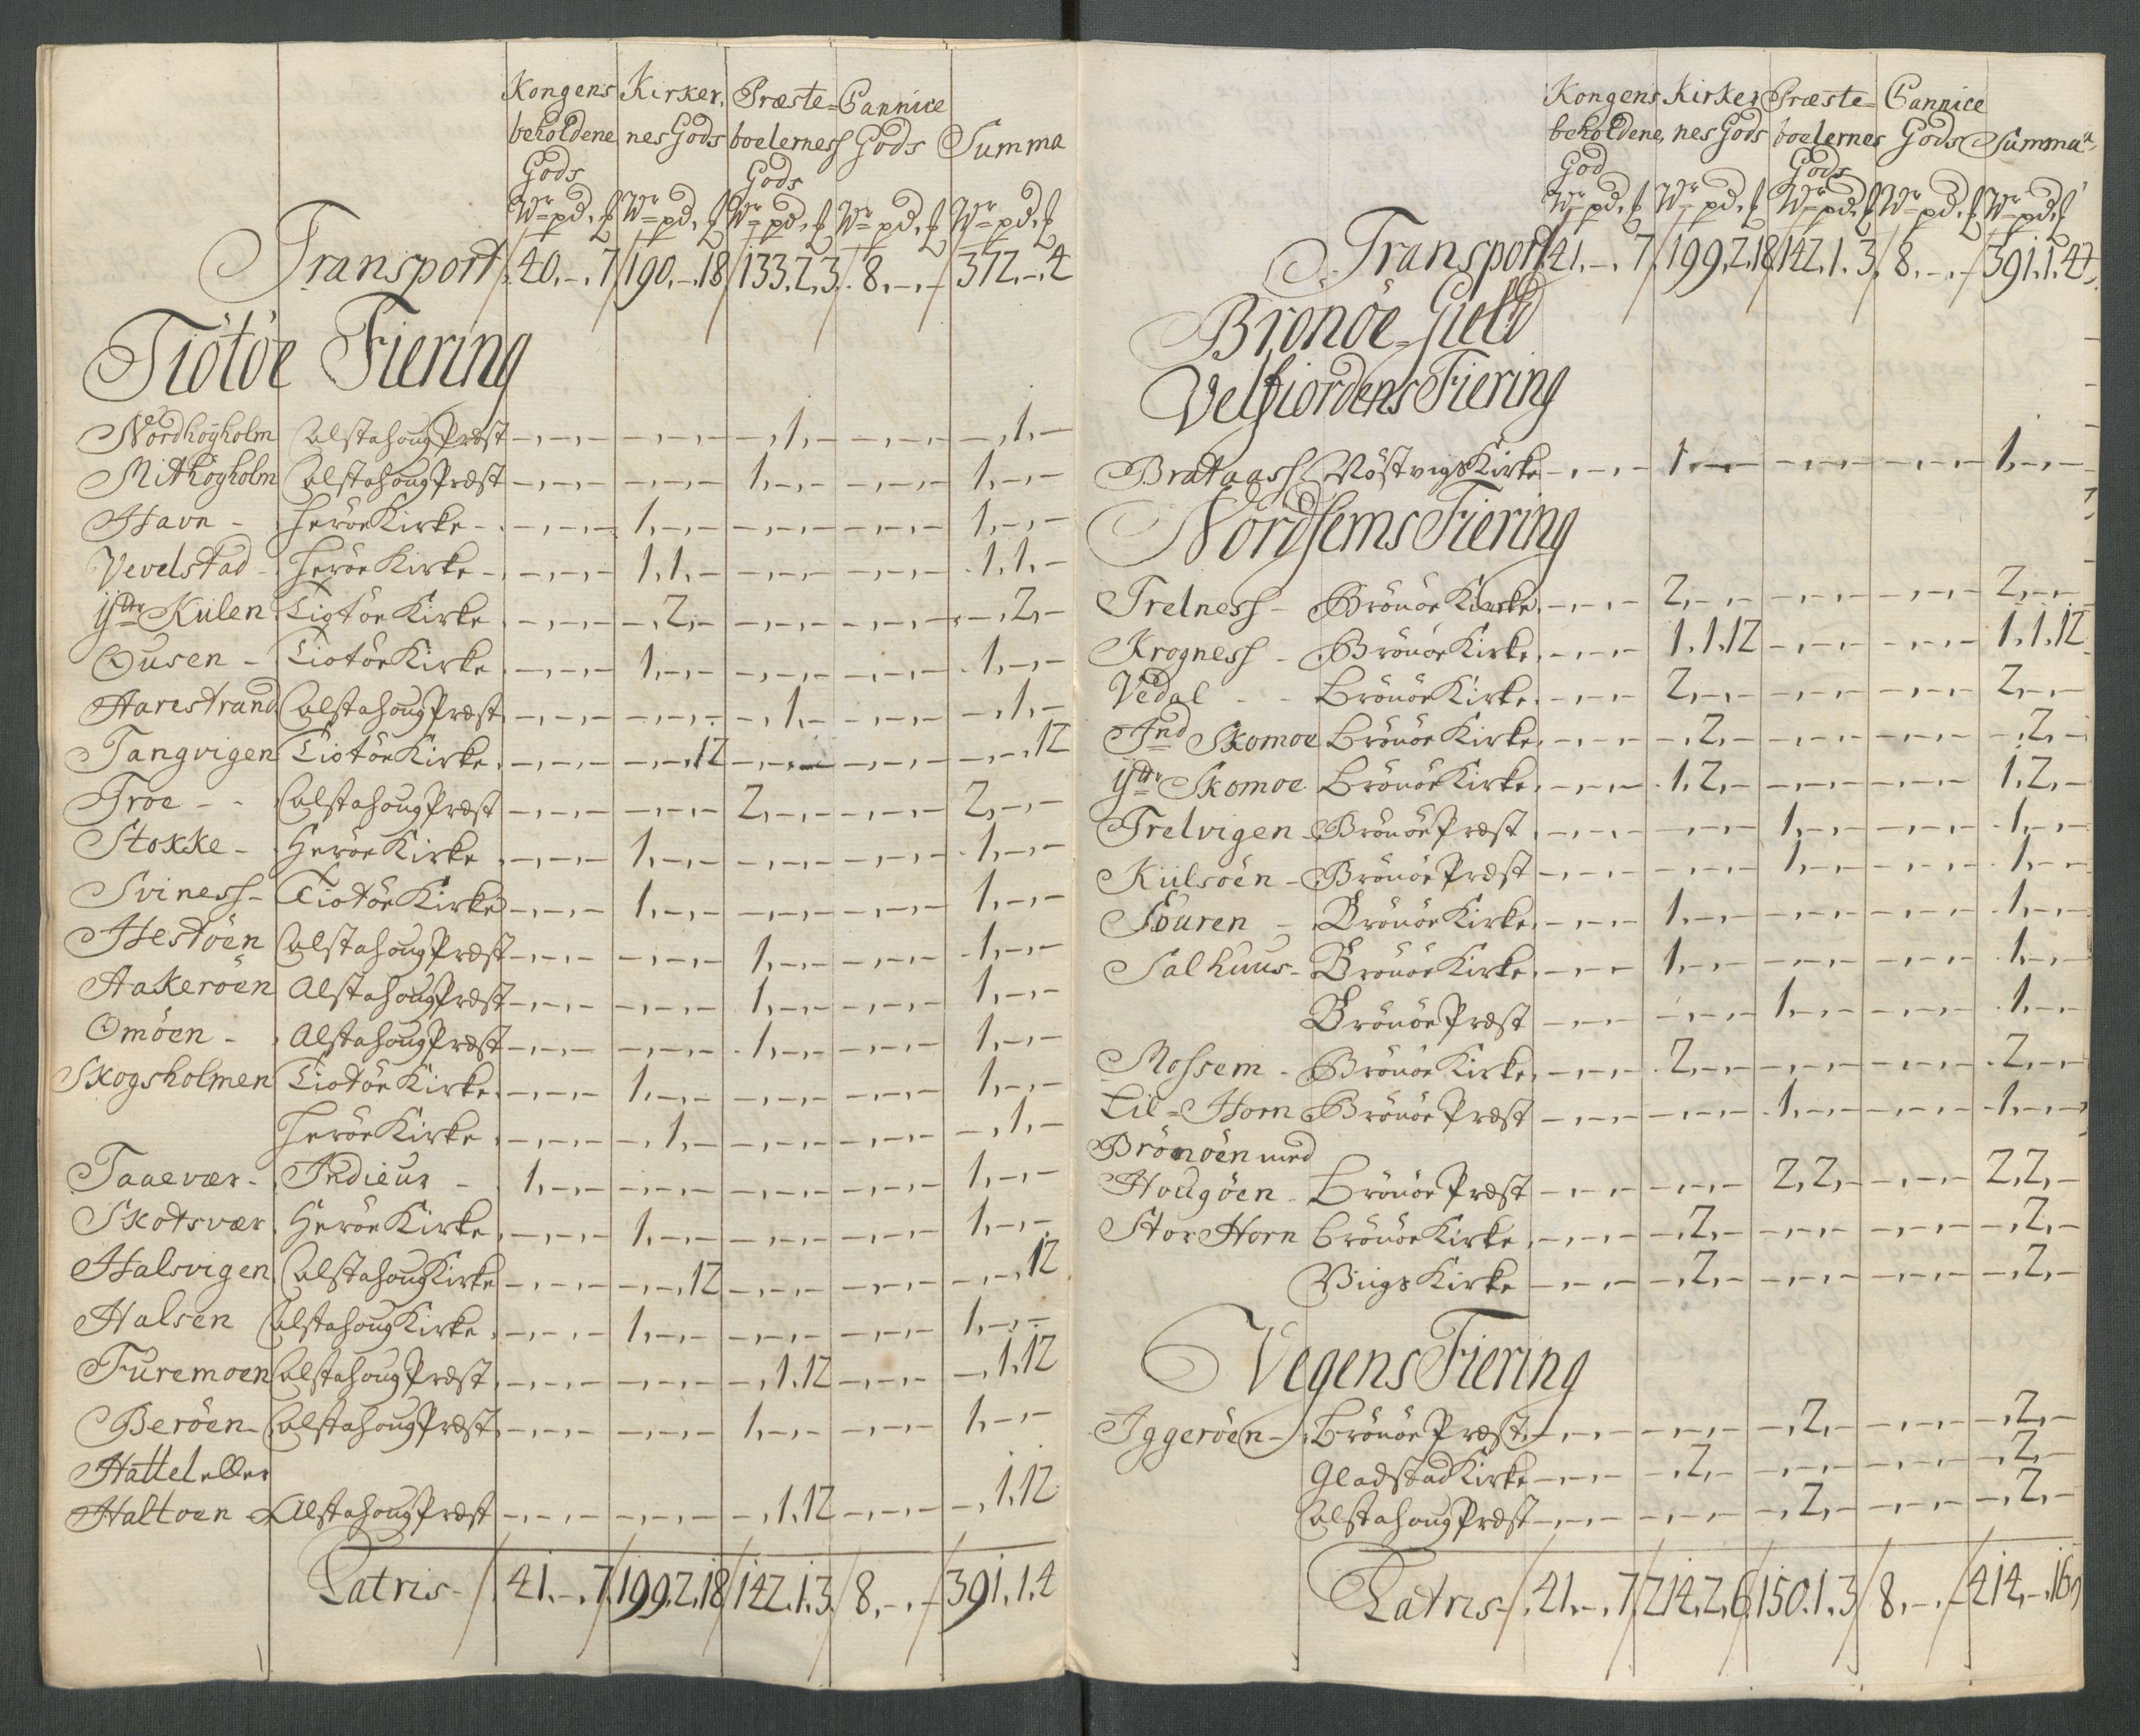 Kongens Kirker, Præste= Cannice
beholdene nes Gods boelerness Gods Summa
Gods Gods
Wr pd. Wr pd. Wr pd. Wr pd. Wr pd.
Transport 40.-.7 190.-.18 133.2.3. 8.-.- 372.-.4
Tiötöe Fiering
Nordhøgholm Alstahoug Præst -.-.- -.-.- -.1.- -.-.- -.1.-
Mithøgholm Alstahoug Præst -.-.- -.-.- 1.-.- -.-.- 1.-.-
Havn - Herøe Kirke -.-.- 1.-.- -.-.- -.-.- 1.-.-
Vevelstad - Herøe Kirke -.-.- 1.1.- -.-.- -.-.- 1.1.-
Ÿttr Kulen Tiotøe Kirke -.-.- -.2.- -.-.- -.-.- -.2.-
Ousen - Tiotøe Kirke -.-.- 1.-.- -.-.- -.-.- 1.-.-
Harestrand Alstahoug Præst -.-.- -.-.- -.1.- -.-.- -.1.-
Tangvigen Tiotøe Kirke -.-.- -.-.12 -.-.- -.-.- -.-.12
Troe - - Alstahoug Præst -.-.- -.-.- 2.-.- -.-.- 2.-.-
Stokke - Herøe Kirke -.-.- 1.-.- -.-.- -.-.- 1.-.-
Sviness - Tiotøe Kirke -.-.- 1.-.- -.-.- -.-.- 1.-.-
Hestöen Alstahoug Præst -.-.- -.-.- 1.-.- -.-.- 1.-.-
Aakeröen Alstahoug Præst -.-.- -.-.- 1.-.- -.-.- 1.-.-
Omöen - Alstahoug Præst -.-.- -.-.- 1.-.- -.-.- 1.-.-
Skogsholmen Tiotøe Kirke -.-.- 1.-.- -.-.- -.-.- 1.-.-
Herøe Kirke -.-.- -.1.- -.-.- -.-.- -.1.-
Taaevær - Indieur - 1.-.- -.-.- -.-.- -.-.- 1.-.-
Skotsvær Herøe Kirke -.-.- 1.-.- -.-.- -.-.- 1.-.-
Halsvigen Alstahoug Kirke -.-.- -.-.12 -.-.- -.-.- -.-.12
Halsen Alstahoug Kirke -.-.- 1.-.- -.-.- -.-.- 1.-.-
Furemoen Alstahoug Præst -.-.- -.-.- -.1.12 -.-.- -.1.12
Beröen - Alstahoug Præst -.-.- -.-.- 1.-.- -.-.- 1.-.-
Hattel eller
Haltoen - Alstahoug Præst -.-.- -.-.- -.1.12 -.-.- -.1.12
Latris - 41.-.7 199.2.18 142.1.3. 8.-.- 391.1.4
Kongens Kirker Præste= Cannice
beholdene, nes Gods boelernes Gods Summa
God Gods
Wr pd. Wr pd. Wr pd. Wr pd. Wr pd.
Transport 41.-.7. 199.2.18 142.1.3. 8.-.- 391.1.4
Brönöe Gield
Velfiordens Fiering
Brataass Nöstvigs Kirke -.-.- 1.-.- -.-.- -.-.- 1.-.-
Nordhems Fiering
Trelness - Brönöe Kirke -.-.- 2.-.- -.-.- -.-.- 2.-.-
Krogness - Brönöe Kirke -.-.- 1.1.12 -.-.- -.-.- 1.1.12
Vedal - - Brönöe Kirke -.-.- 2.-.- -.-.- -.-.- 2.-.-
Ind Skomoe Brönöe Kirke -.-.- -.2.- -.-.- -.-.- -.2.-
Ÿttr Skomoe Brönöe Kirke -.-.- 1.2.- -.-.- -.-.- 1.2.-
Trelvigen Brönöe Præst -.-.- -.-.- 1.-.- -.-.- 1.-.-
Kulsöen - Brönöe Præst -.-.- -.-.- 1.-.- -.-.- 1.-.-
Touren - Brönöe Kirke -.-.- 1.-.- -.-.- -.-.- 1.-.-
Salhuus - Brönöe Kirke -.-.- 1.-.- -.-.- -.-.- 1.-.-
Brönöe Præst -.-.- -.-.- 1.-.- -.-.- 1.-.-
Mossem - Brönöe Kirke -.-.- 2.-.- -.-.- -.-.- 2.-.-
Lil=Horn Brönöe Præst -.-.- -.-.- 1.-.- -.-.- 1.-.-
Brönöen med
Hougöen - Brönöe Præst -.-.- -.-.- 2.2.- -.-.- 2.2.-
Stor Horn Brönöe Kirke -.-.- -.2.- -.-.- -.-.- -.2.-
Viigs Kirke -.-.- -.2.- -.-.- -.-.- -.2.-
Vegens Fiering
Iggeröen - Brönöe Præst -.-.- -.-.- -.2.- -.-.- -.2.-
Gladstad Kirke -.-.- -.2.- -.-.- -.-.- -.2.-
Alstahoug Præst -.-.- -.-.- -.2.- -.-.- -.2.-
Latris - 41.-.7. 214.2.6 150.1.3 8.-.- 414.-.16